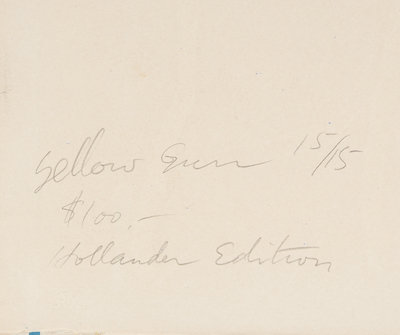 Yellow Green 15/15
$100.-
Hollander Edition